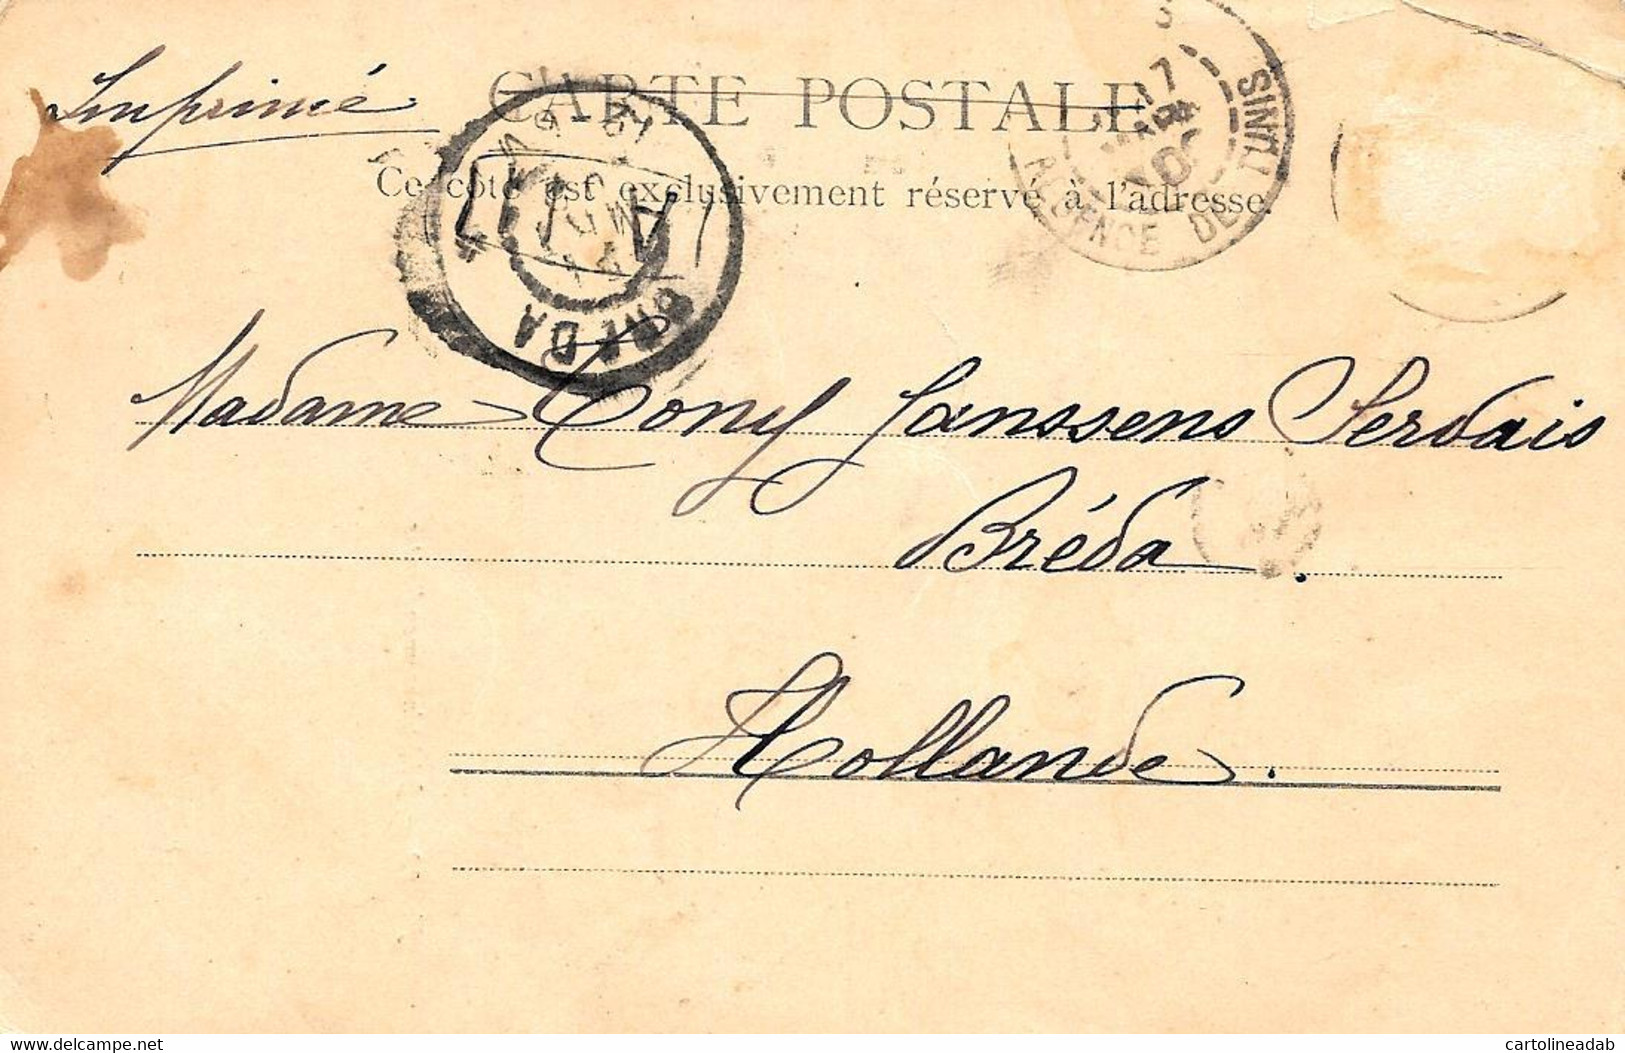 Imprimé
CARTE POSTALE
Ce côté est exclusivement réservé à l'adresse.
TUNIS
RÉGENCE DE
17
MARS
BREDA
Madame Tony Janssens Servais
Bréda.
Hollande.
https://www.delcampe.net
cartolineadab